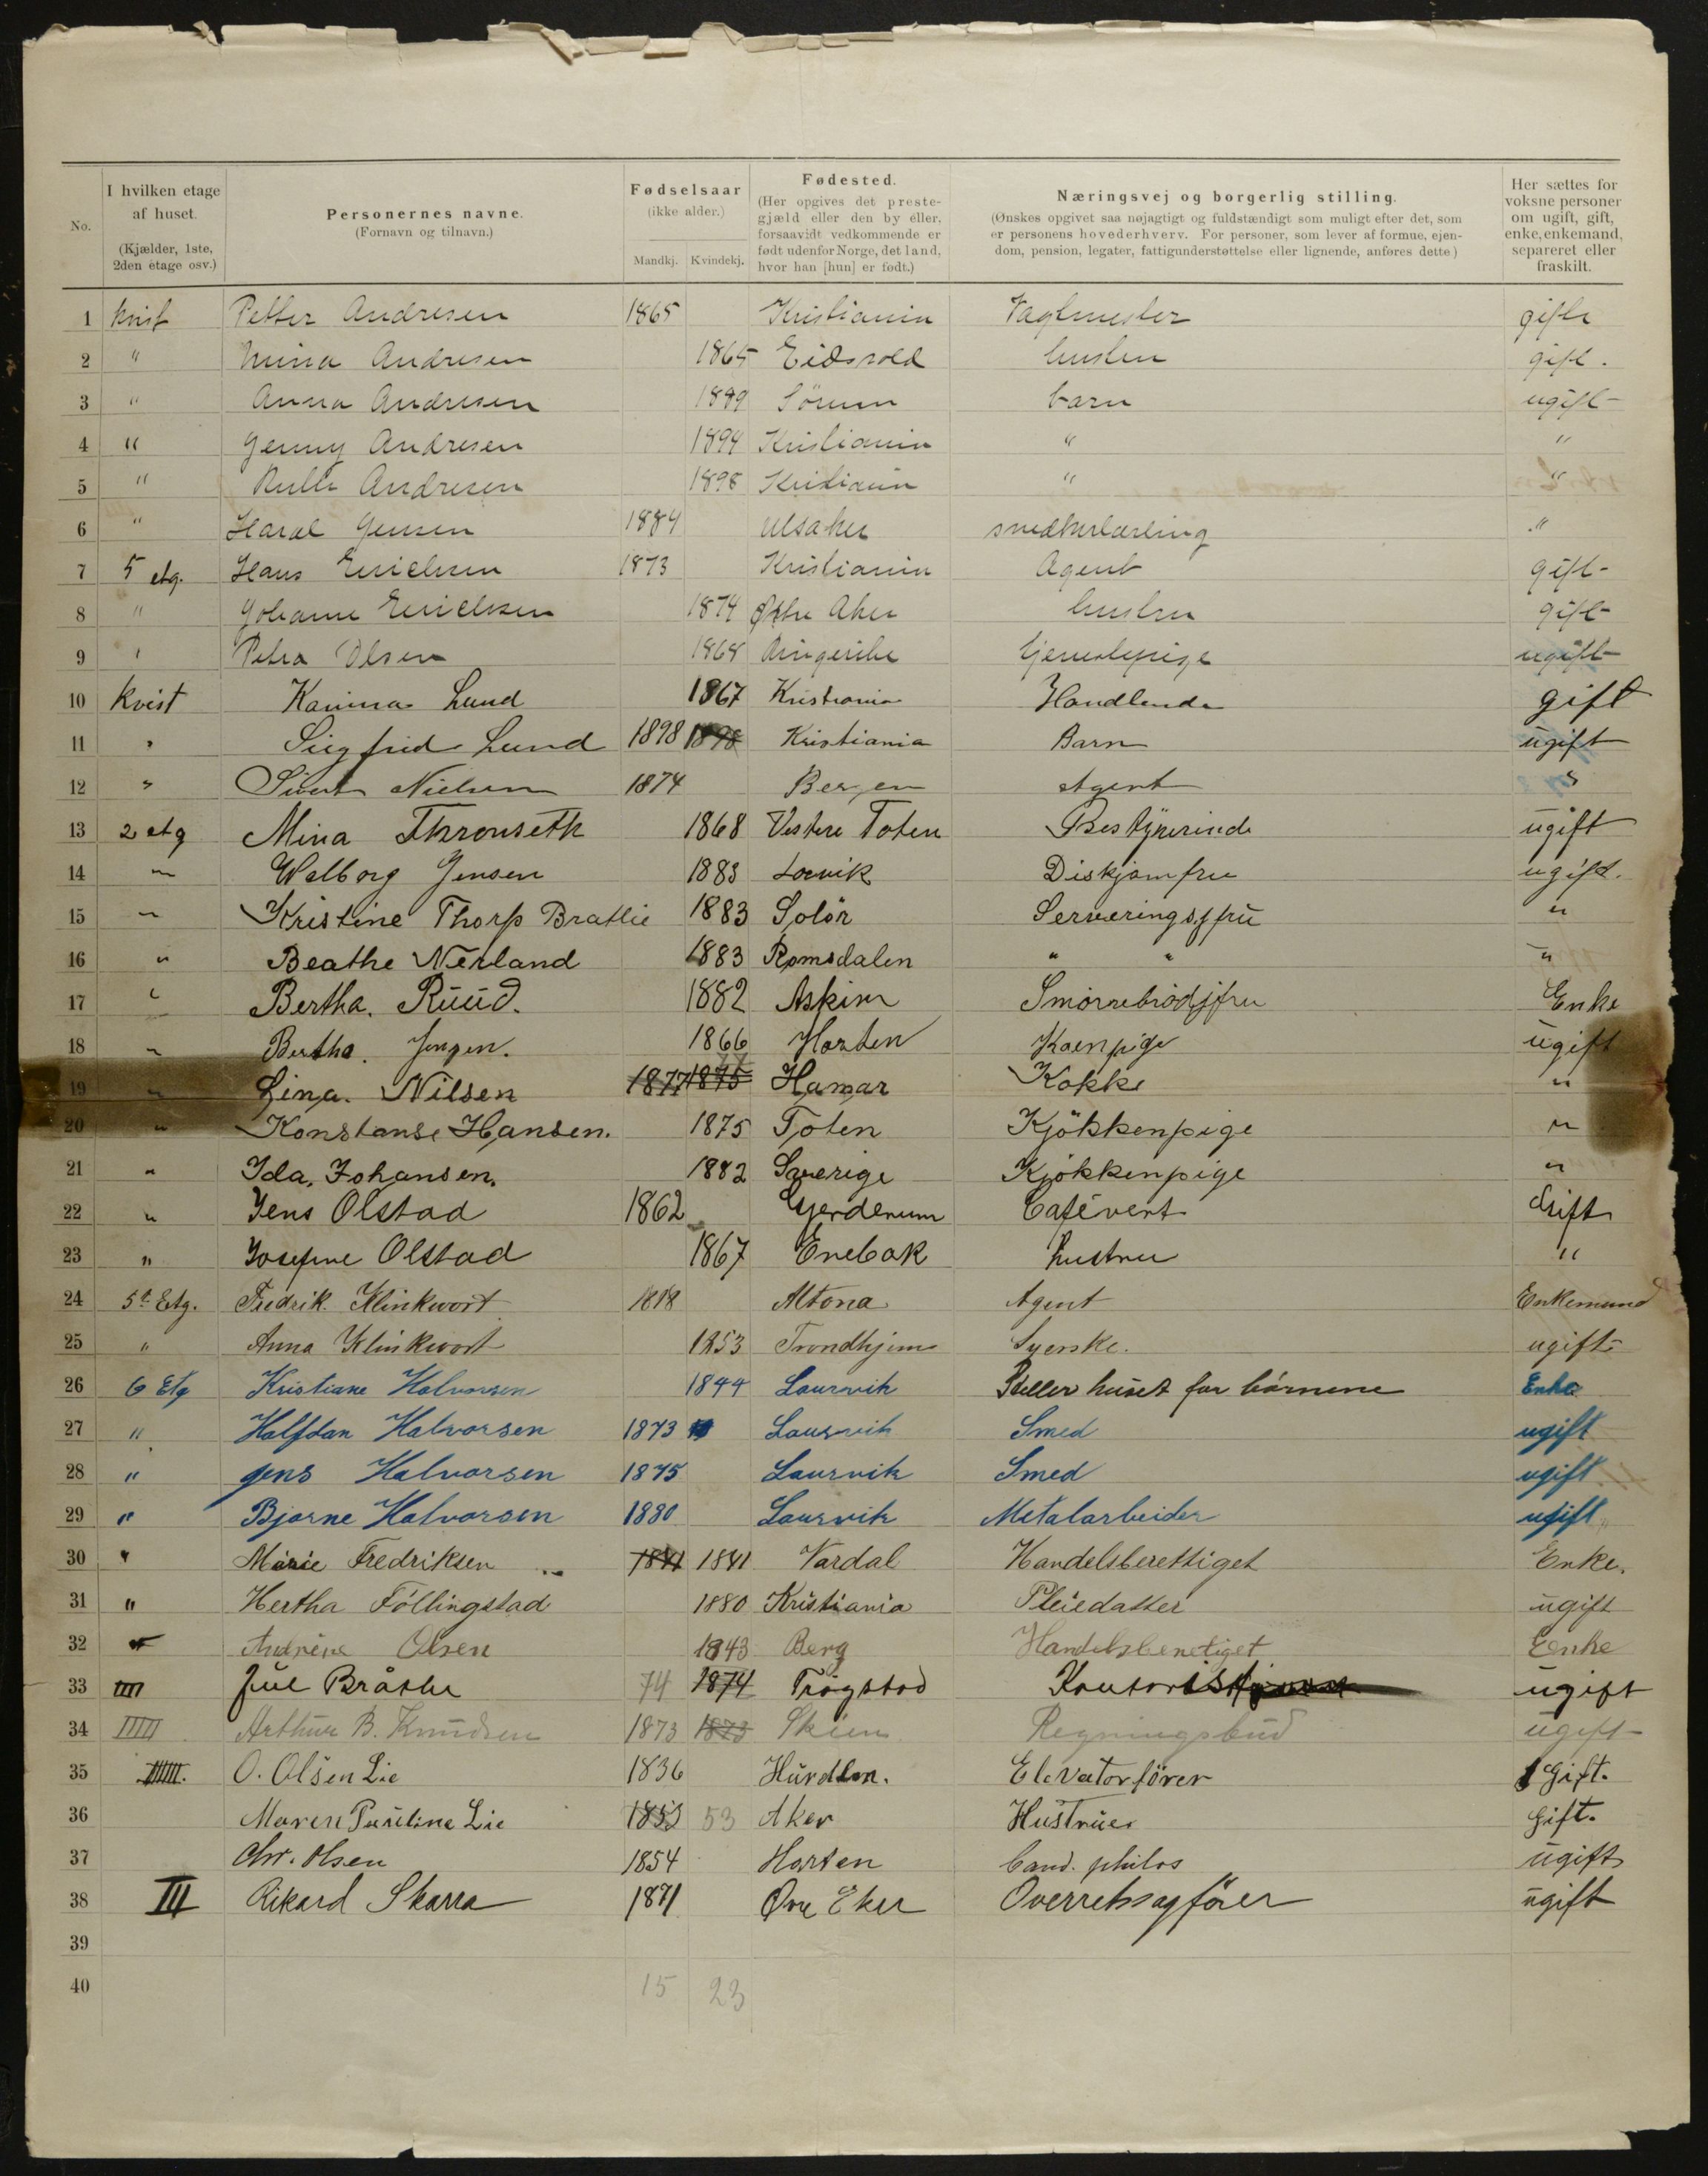 No.
I hvilken etage af huset. (Kjælder, 1ste, 2den etage osv.)
Personernes navne. (Fornavn og tilnavn.)
Fødselsaar (ikke alder.) Mandkj. Kvindekj.
Fødested. (Her opgives det prestegjæld eller den by eller, forsaavidt vedkommende er født udenfor Norge, det land, hvor han [hun] er født.)
Næringsvej og borgerlig stilling. (Ønskes opgivet saa nøjagtigt og fuldstændigt som muligt efter det, som er personens hovederhverv. For personer, som lever af formue, ejendom, pension, legater, fattigunderstøttelse eller lignende, anføres dette)
Her sættes for voksne personer om ugift, gift, enke, enkemand, separeret eller fraskilt.
1 kvist Petter Andresen 1865 Kristiania Vagtmester gift
2 " Mina Andresen 1865 Eidsvold hustru gift.
3 " Anna Andresen 1889 Sørum barn ugift
4 " Jenny Andresen 1894 Kristiania " "
5 " Ruth Andresen 1898 Kristiania " "
6 " Haral Jensen 1884 Ulsaker snedkerlærling "
7 5 etg. Hans Erichsen 1873 Kristiania Agent gift
8 " Johanne Erichsen 1874 Østre Aker hustru gift
9 " Petra Olsen 1868 Ringerike tjenestepige ugift
10 kvist Kamma Lund 1867 Kristiania Handlende gift
11 " Siegfried Lund 1898 1898 Kristiania Barn ugift
12 " Sivert Nielsen 1874 Bergen Agent "
13 2 etg Mina Thronseth 1868 Vestere Toten Bestyrerinde ugift
14 " Walborg Jensen 1883 Lørvik Diskjomfru ugift.
15 " Kristine Thorp Bratlie 1883 Solør Serveringsjfru "
16 " Beathe Nerland 1883 Romsdalen " " "
17 " Bertha. Ruud. 1882 Askim Smørrebrødjfru Enke
18 " Bertha. Jensen. 1866 Horten Kaenpige ugift
19 " Lina. Nilsen 1877 1875 77 Hamar Kokke "
20 " Konstanse Hansen. 1875 Toten Kjøkkenpige "
21 " Ida. Johansen. 1882 Sverige Kjøkkenpige "
22 " Jens Olstad 1862 Gjerderum Cafévert Gift
23 " Josefine Olstad 1867 Enebak hustru "
24 5te Etg. Fredrik Klinkwort 1818 Altona Agent Enkemand
25 " Anna Klinkwort 1853 Trondhjem Syerske. ugift
26 6 Etg Kristiane Halvorsen 1844 Laurvik Steller huset for børnene Enke
27 " Halfdan Halvorsen 1873 Laurvik Smed ugift
28 " Jens Halvorsen 1875 Laurvik Smed ugift
29 " Bjarne Halvorsen 1880 Laurvik Metalarbeider ugift
30 " Marie Fredriksen 1841 1841 Vardal Handelsberettiget Enke.
31 " Hertha Føllingstad 1880 Kristiania Pleiedatter ugift
32 " Andrine Olsen 1843 Berg Handelsberetiget Eenke
33 IIII Jul Bråthe 74 1874 Trøgstad Kontorist ugift
34 IIIII Arthur B. Knudsen 1873 1873 Skien Regningsbud ugift
35 IIIIII. O. Olsen Lie 1836 Hurdlen. Elevatorfører Gift.
36 Maren Pauline Lie 1853 53 Aker Hustrue Gift.
37 Chr. Olsen 1854 Horten Cand. philos ugift
38 III Rikard Skarra 1871 Øvre Eker Overretssagfører ugift
39
40 15 23